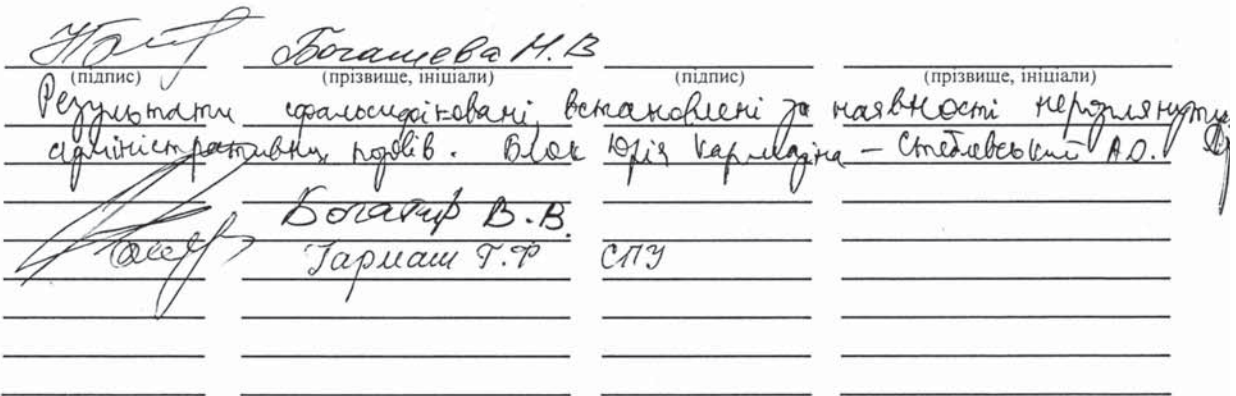 Богашева Н.В
(підпис) (прізвище, ініціали) (підпис) (прізвище, ініціали)
Результати сфальсифіковані, встановлені за наявності нерозглянутих
адміністративних позовів. Блок Юрія Кармазіна – Стеблевський А.О.
Богатир В.В.
Гармаш Г.Ф СПУ